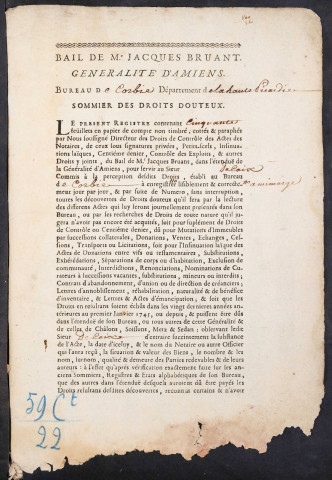 BAIL DE Me JACQUES BRUANT.
GENERALITE D'AMIENS.
BUREAU DE Corbie Département de la haute Picardie
SOMMIER DES DROITS DOUTEUX.
LE PRESENT REGISTRE contenant Cinquante
feüillets en papier de compte non timbré, cotés & paraphés
par Nous soussigné Directeur des Droits de Contrôle des Actes des
Notaires, de ceux sous signatures privées, Petits-scels, Insinua-
tions laïques, Centiéme denier, Contrôle des Exploits, & autres
Droits y joints, du Bail de Me Jacques Bruant, dans l'étenduë de
la Généralité d'Amiens, pour servir au Sieur
Commis à la perception desdits Droits, établi au Bureau
de Corbie à enregistrer lisiblement & correcte-
ment jour par jour, & par suite de Numero, sans interruption,
toutes les découvertes de Droits douteux qu'il sera par la lecture
des differens Actes qui seront journellement presentés dans son
Bureau, ou par les recherches de Droits de toute nature qu'il ju-
gera n'avoir pas encore été acquités, soit pour suplément de Droits
de Contrôle ou Centiéme denier, dû pour Mutations d'Immeubles
par successions collaterales, Donations, Ventes, Echanges, Ces-
sions, Transports ou Licitations, soit pour l'Insinuation laïque des
Actes de Donations entre vifs ou testamentaires, Substitutions,
Exhérédations, Séparations de corps ou d'habitation, Exclusion de
communauté, Interdictions, Renonciations, Nominations de Cu-
rateurs à successions vacantes, substitutions, mineurs ou interdits,
Contrats d'abandonnement, d'union ou de direction de créanciers,
Lettres d'annoblissement, réhabilitation, naturalité & de bénéfice
d'inventaire, & Lettres & Actes d'émancipation, & soit que les
Droits en resultans soient échûs dans les vingt dernieres années an-
terieures au premier Janvier 1745, ou depuis, & puissent être dûs
dans l'étenduë de son Bureau, ou tous autres de cette Généralité &
de celles de Châlons, Soissons, Metz & Sedan; observant ledit
Sieur d'extraire succinctement la substance
de l'Acte, la date d'iceluy, & le nom du Notaire ou autre Officier
qui l'aura reçû, la situation & valeur des Biens, le nombre & les
nom, surnom, qualité & demeure des Parties redevables & de leurs
auteurs: à l'effet qu'après vérification exactement faite sur les an-
ciens Sommiers, Registres & Etats alphabetiques de son Bureau,
que des autres dans l'étenduë desquels auroient dû être payés les
Droits resultans desdites découvertes, reconnus certains & n'avoir
59 Ct
22